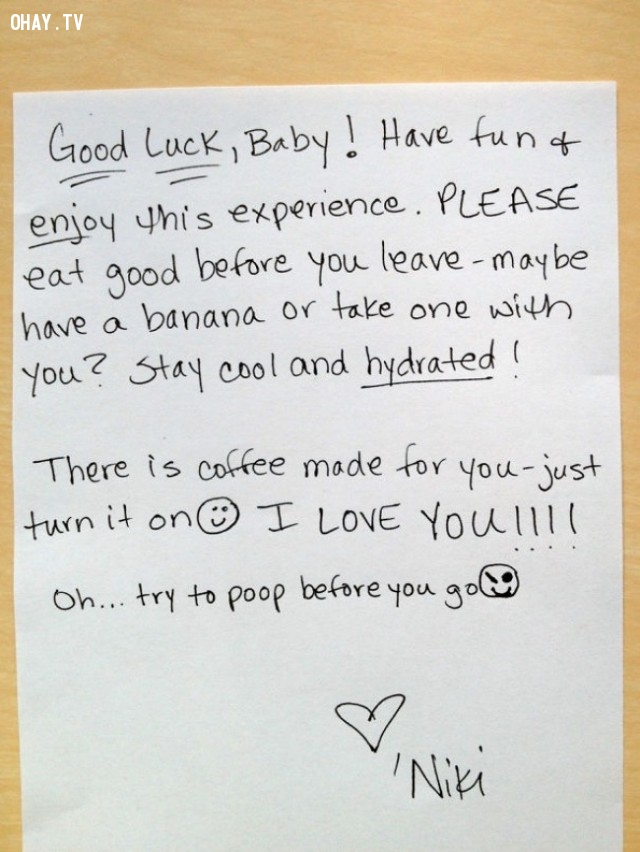 OHAY.TV
Good Luck, Baby! Have fun &
enjoy this experience. PLEASE
eat good before you leave - maybe
have a banana or take one with
you? Stay cool and hydrated!
There is coffee made for you - just
turn it on☺ I LOVE YOU!!!!
Oh... try to poop before you go😈
♡
'Niki